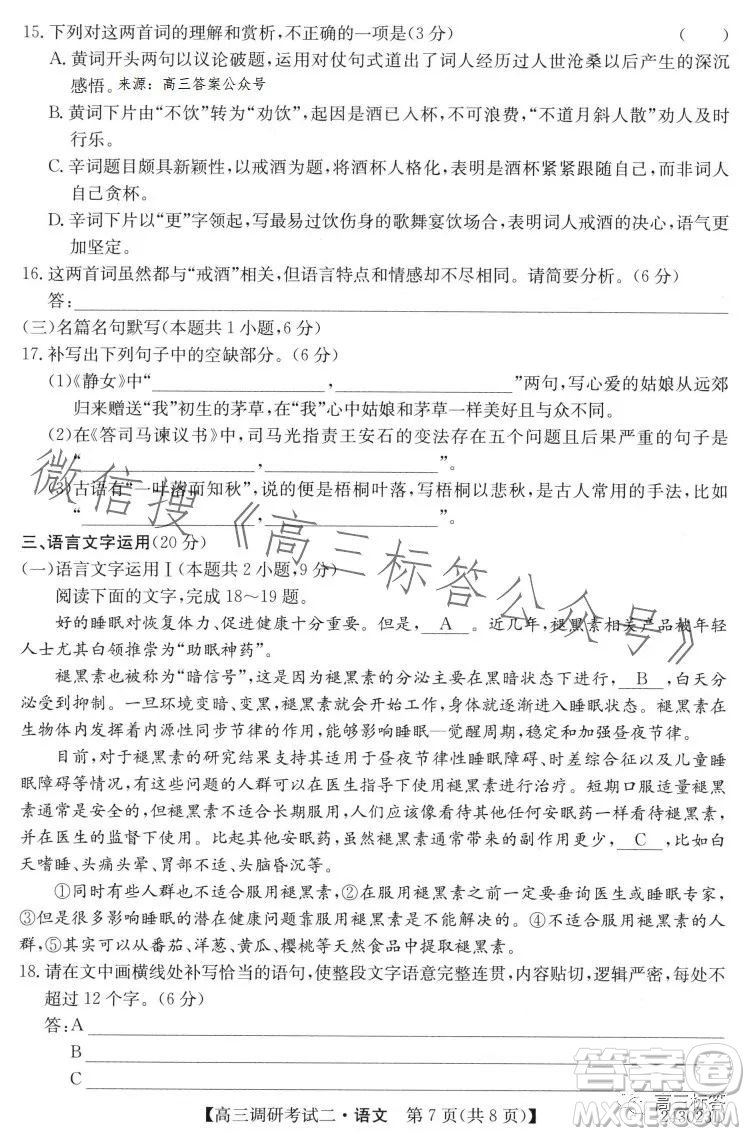 15. 下列对这两首词的理解和赏析，不正确的一项是(3分) (　　)
A. 黄词开头两句以议论破题，运用对仗句式道出了词人经历过人世沧桑以后产生的深沉
感悟。来源：高三答案公众号
B. 黄词下片由“不饮”转为“劝饮”，起因是酒已入杯，不可浪费，“不道月斜人散”劝人及时
行乐。
C. 辛词题目颇具新颖性，以戒酒为题，将酒杯人格化，说成是酒杯紧紧跟随自己，而非词人
自己贪杯。
D. 辛词下片以“更”字领起，写最易多饮伤身的歌舞宴饮场合，表明词人戒酒的决心，语气更
加坚定。
16. 这两首词虽然都与“戒酒”相关，但语言特点和情感却不尽相同。请简要分析。(6分)
答：
(三)名篇名句默写(本题共1小题，6分)
17. 补写出下列句子中的空缺部分。(6分)
(1)《静女》中“____，____”两句，写心爱的姑娘从远郊
归来赠送“我”初生的茅草，在“我”心中姑娘和茅草都美好且与众不同。
(2)在《答司马谏议书》中，司马光指责王安石的变法存在五个问题且后果严重的句子是
“____，____”。
(3)古语有“一叶落而知秋”，说的便是梧桐叶落，写梧桐以悲秋，是古人常用的手法，比如
“____，____”。
三、语言文字运用(20分)
(一)语言文字运用Ⅰ(本题共2小题，9分)
阅读下面的文字，完成18～19题。
好的睡眠对恢复体力、促进健康十分重要。但是，__A__。近几年，褪黑素相关产品被年轻
人士尤其白领推崇为“助眠神药”。
褪黑素也被称为“暗信号”，这是因为褪黑素的分泌主要在黑暗状态下进行，__B__，白天分
泌受到抑制。一旦环境变暗、变黑，褪黑素就会开始分泌，提示身体进入睡眠状态。褪黑素在
生物体内发挥着内源性同步节律的作用，能够影响睡眠—觉醒周期，稳定和加强昼夜节律。
目前，对于褪黑素的研究结果支持其适用于昼夜节律性睡眠障碍、时差综合征以及儿童睡
眠障碍等情况，有以上问题的人群可以在医生指导下使用褪黑素进行治疗。短期口服适量褪黑
素通常是安全的，但褪黑素要像其他任何安眠药一样看待褪黑素，使用前要和医生沟通交流，
并在医生的监督下使用。比起其他安眠药，虽然褪黑素通常带来的副作用更少，__C__，比如白
天嗜睡、头痛头晕、胃部不适、日间昏沉等。
①同时有些人群也不适合服用褪黑素，②在服用褪黑素之前一定要垂询医生或睡眠专家，
③但是影响睡眠的潜在健康问题无法通过服用褪黑素得到改善。④不适合服用褪黑素的人
群，⑤其实可以从番茄、洋葱、黄瓜、樱桃等食品中提取褪黑素。
18. 请在文中画横线处补写恰当的语句，使整段文字语意完整连贯，内容贴切，逻辑严密，每处不
超过12个字。(6分)
答：A
B
C
【高三调研考试二·语文　第7页(共8页)】
微信搜《高三标答公众号》
答案卷
高三标答